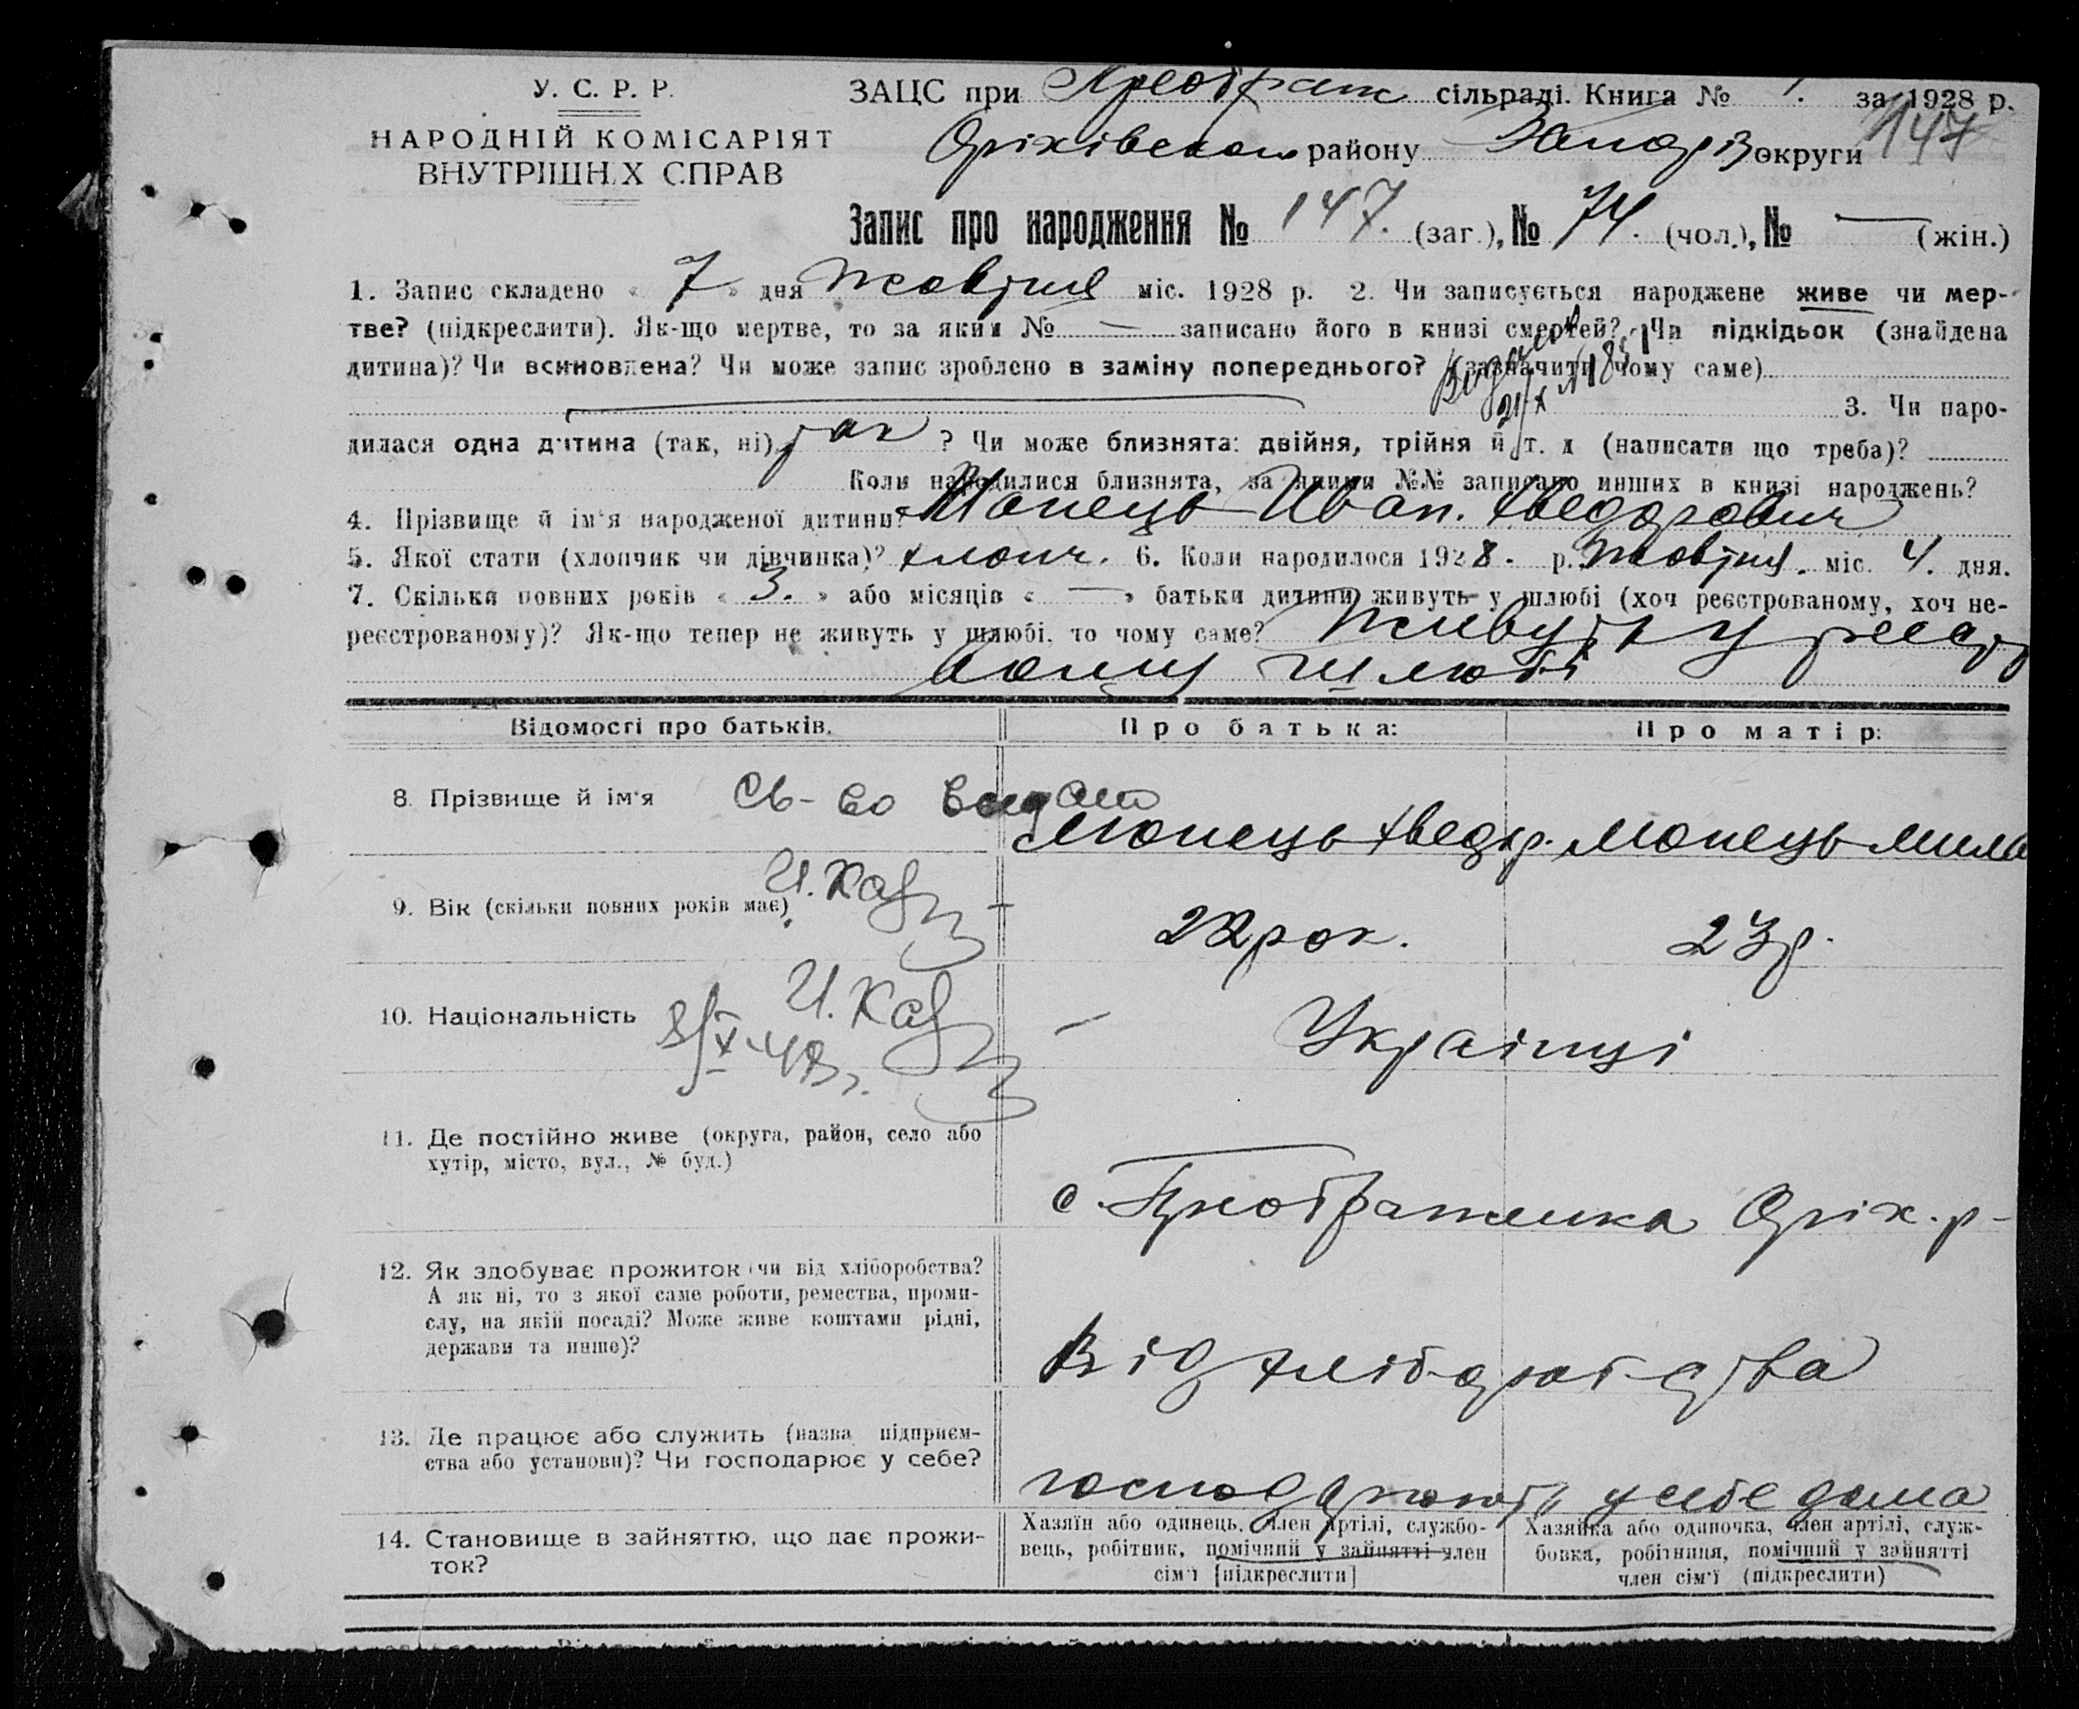 У. С. Р. Р.
НАРОДНІЙ КОМІСАРІЯТ
ВНУТРІШНІХ СПРАВ
ЗАЦС при Преображ сільраді. Книга № 1. за 1928 р.
Оріхівського району Запоріз округи 147
Запис про народження № 147. (заг.), № 74. (чол.), № — (жін.)
1. Запис складено « 7 » дня жовтня міс. 1928 р. 2. Чи записується народжене живе чи мер-
тве? (підкреслити). Як-що мертве, то за яким № — записано його в книзі смертей? Чи підкідьок (знайдена
дитина)? Чи всиновлена? Чи може запис зроблено в заміну попереднього? (зазначити чому саме)
3. Чи наро-
дилася одна дитина (так, ні) так ? Чи може близнята: двійня, трійня й т. д (написати що треба)?
Коли народилися близнята, за якими №№ записано инших в книзі народжень?
4. Прізвище й ім'я народженої дитини? Мопець Иван. Хведорович
5. Якої стати (хлопчик чи дівчинка)? хлопч. 6. Коли народилося 1928. р. жовтня. міс. 4. дня.
7. Скільки повних років « 3. » або місяців « — » батьки дитини живуть у шлюбі (хоч реєстрованому, хоч не-
реєстрованому)? Як-що тепер не живуть у шлюбі, то чому саме? Живуть у реєстр
ваному шлюбі
Відомості про батьків.
Про батька:
Про матір:
8. Прізвище й ім'я
Св-во выдано
Мопець Хведор. Мопець
9. Вік (скільки повних років має)
22 рок.
23 р.
10. Національність
Українці
11. Де постійно живе (округа, район, село або
хутір, місто, вул., № буд.)
с. Преображенка Оріх. р-
12. Як здобуває прожиток (чи від хліборобства?
А як ні, то з якої саме роботи, ремества, проми-
слу, на якій посаді? Може живе коштами рідні,
держави та инше)?
Від хліборобства
13. Де працює або служить (назва підприєм-
ства або установи)? Чи господарює у себе?
господарюють у себе дома
14. Становище в зайняттю, що дає прожи-
ток?
Хазяїн або одинець, член артілі, службо-
вець, робітник, помічний у зайнятті член
сім'ї [підкреслити]
Хазяйка або одиночка, член артілі, служ-
бовка, робітниця, помічний у зайнятті
член сім'ї (підкреслити)